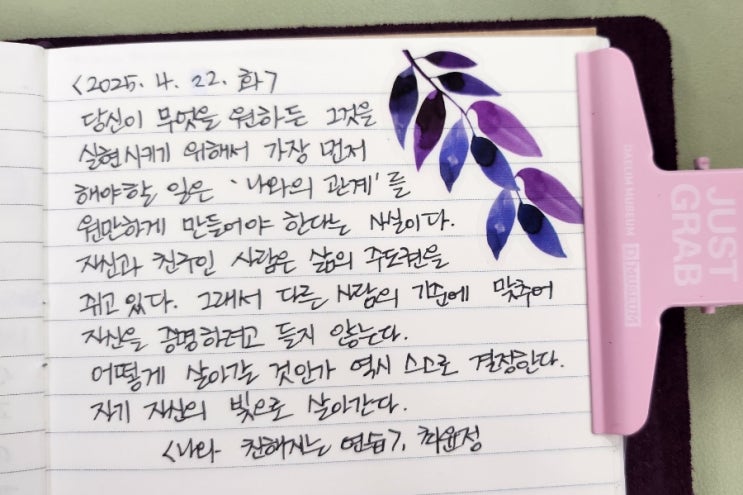 <2025. 4. 22. 화>
당신이 무엇을 원하든 그것을
실현시키기 위해서 가장 먼저
해야할 일은 '나와의 관계'를
원만하게 만들어야 한다는 사실이다.
자신과 친구인 사람은 삶의 주도권을
쥐고 있다. 그래서 다른 사람의 기준에 맞추어
자신을 증명하려고 들지 않는다.
어떻게 살아갈 것인가 역시 스스로 결정한다.
자기 자신의 빛으로 살아간다.
<나와 친해지는 연습>, 최윤정
JUST GRAB
DAELIM MUSEUM D MUSEUM